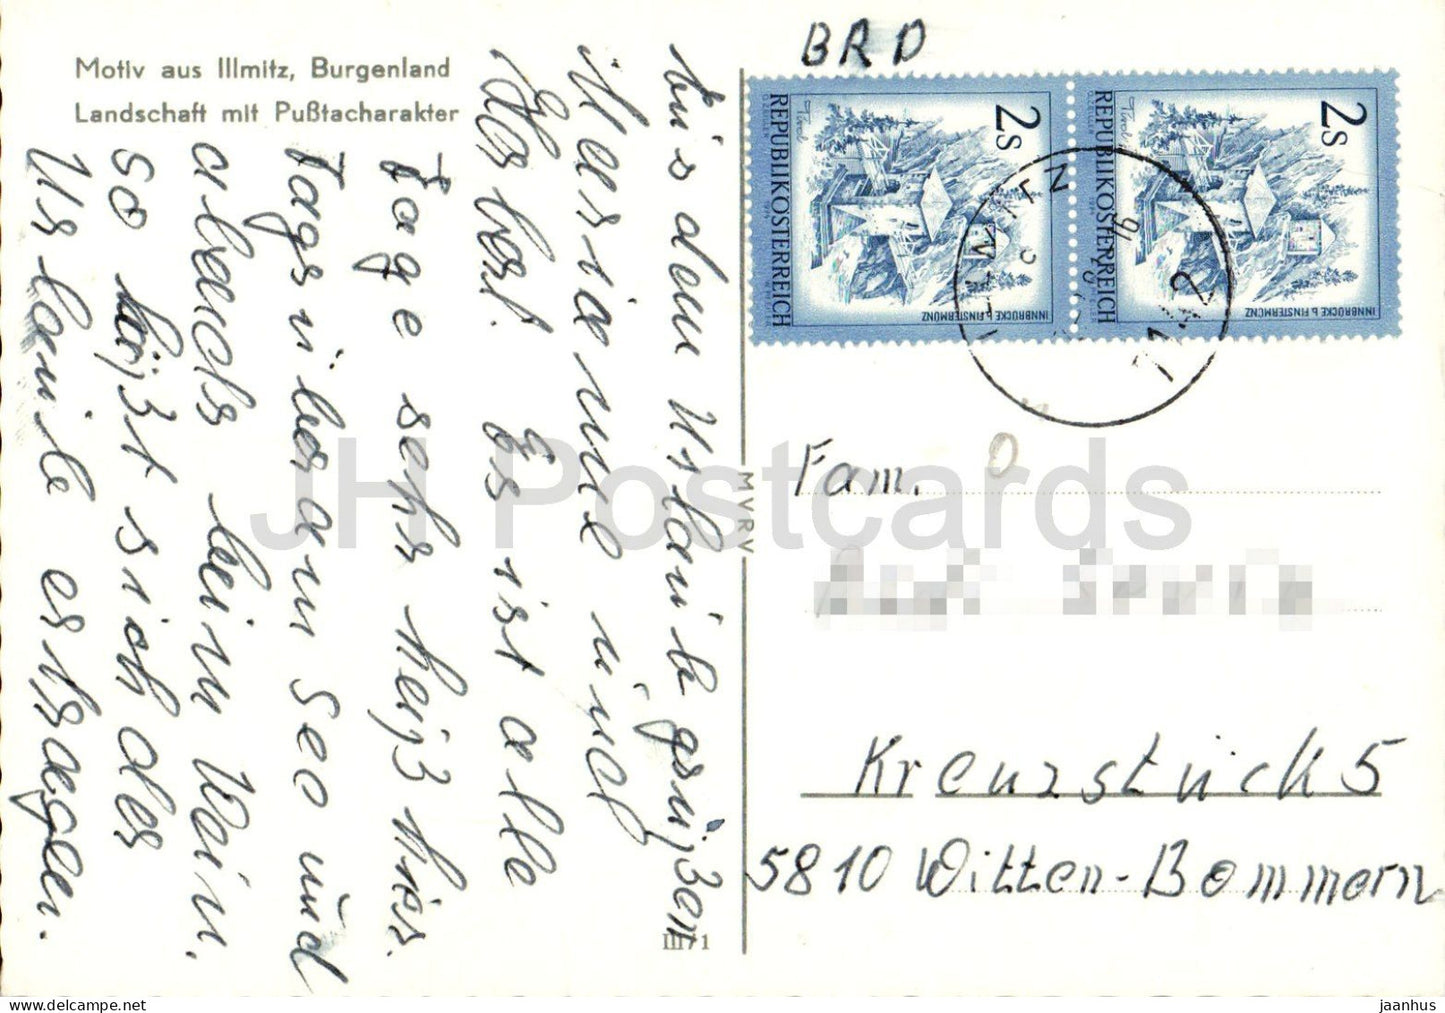 Motiv aus Illmitz, Burgenland
Landschaft mit Pußtacharakter
Aus dem Urlaub grüßen
Marianne und
Herbert. Es ist alle
Tage sehr heiß hier.
Tags über am See und
abends beim Wein,
so läßt sich der
Urlaub ertragen.
BRD
2s
REPUBLIK ÖSTERREICH
INNBRÜCKE b. FINSTERMÜNZ
2s
REPUBLIK ÖSTERREICH
INNBRÜCKE b. FINSTERMÜNZ
7142
MVRV
Fam.
Kreuzstück 5
5810 Witten-Bommern
III/71
JH Postcards
https://www.delcampe.net
jaanhus